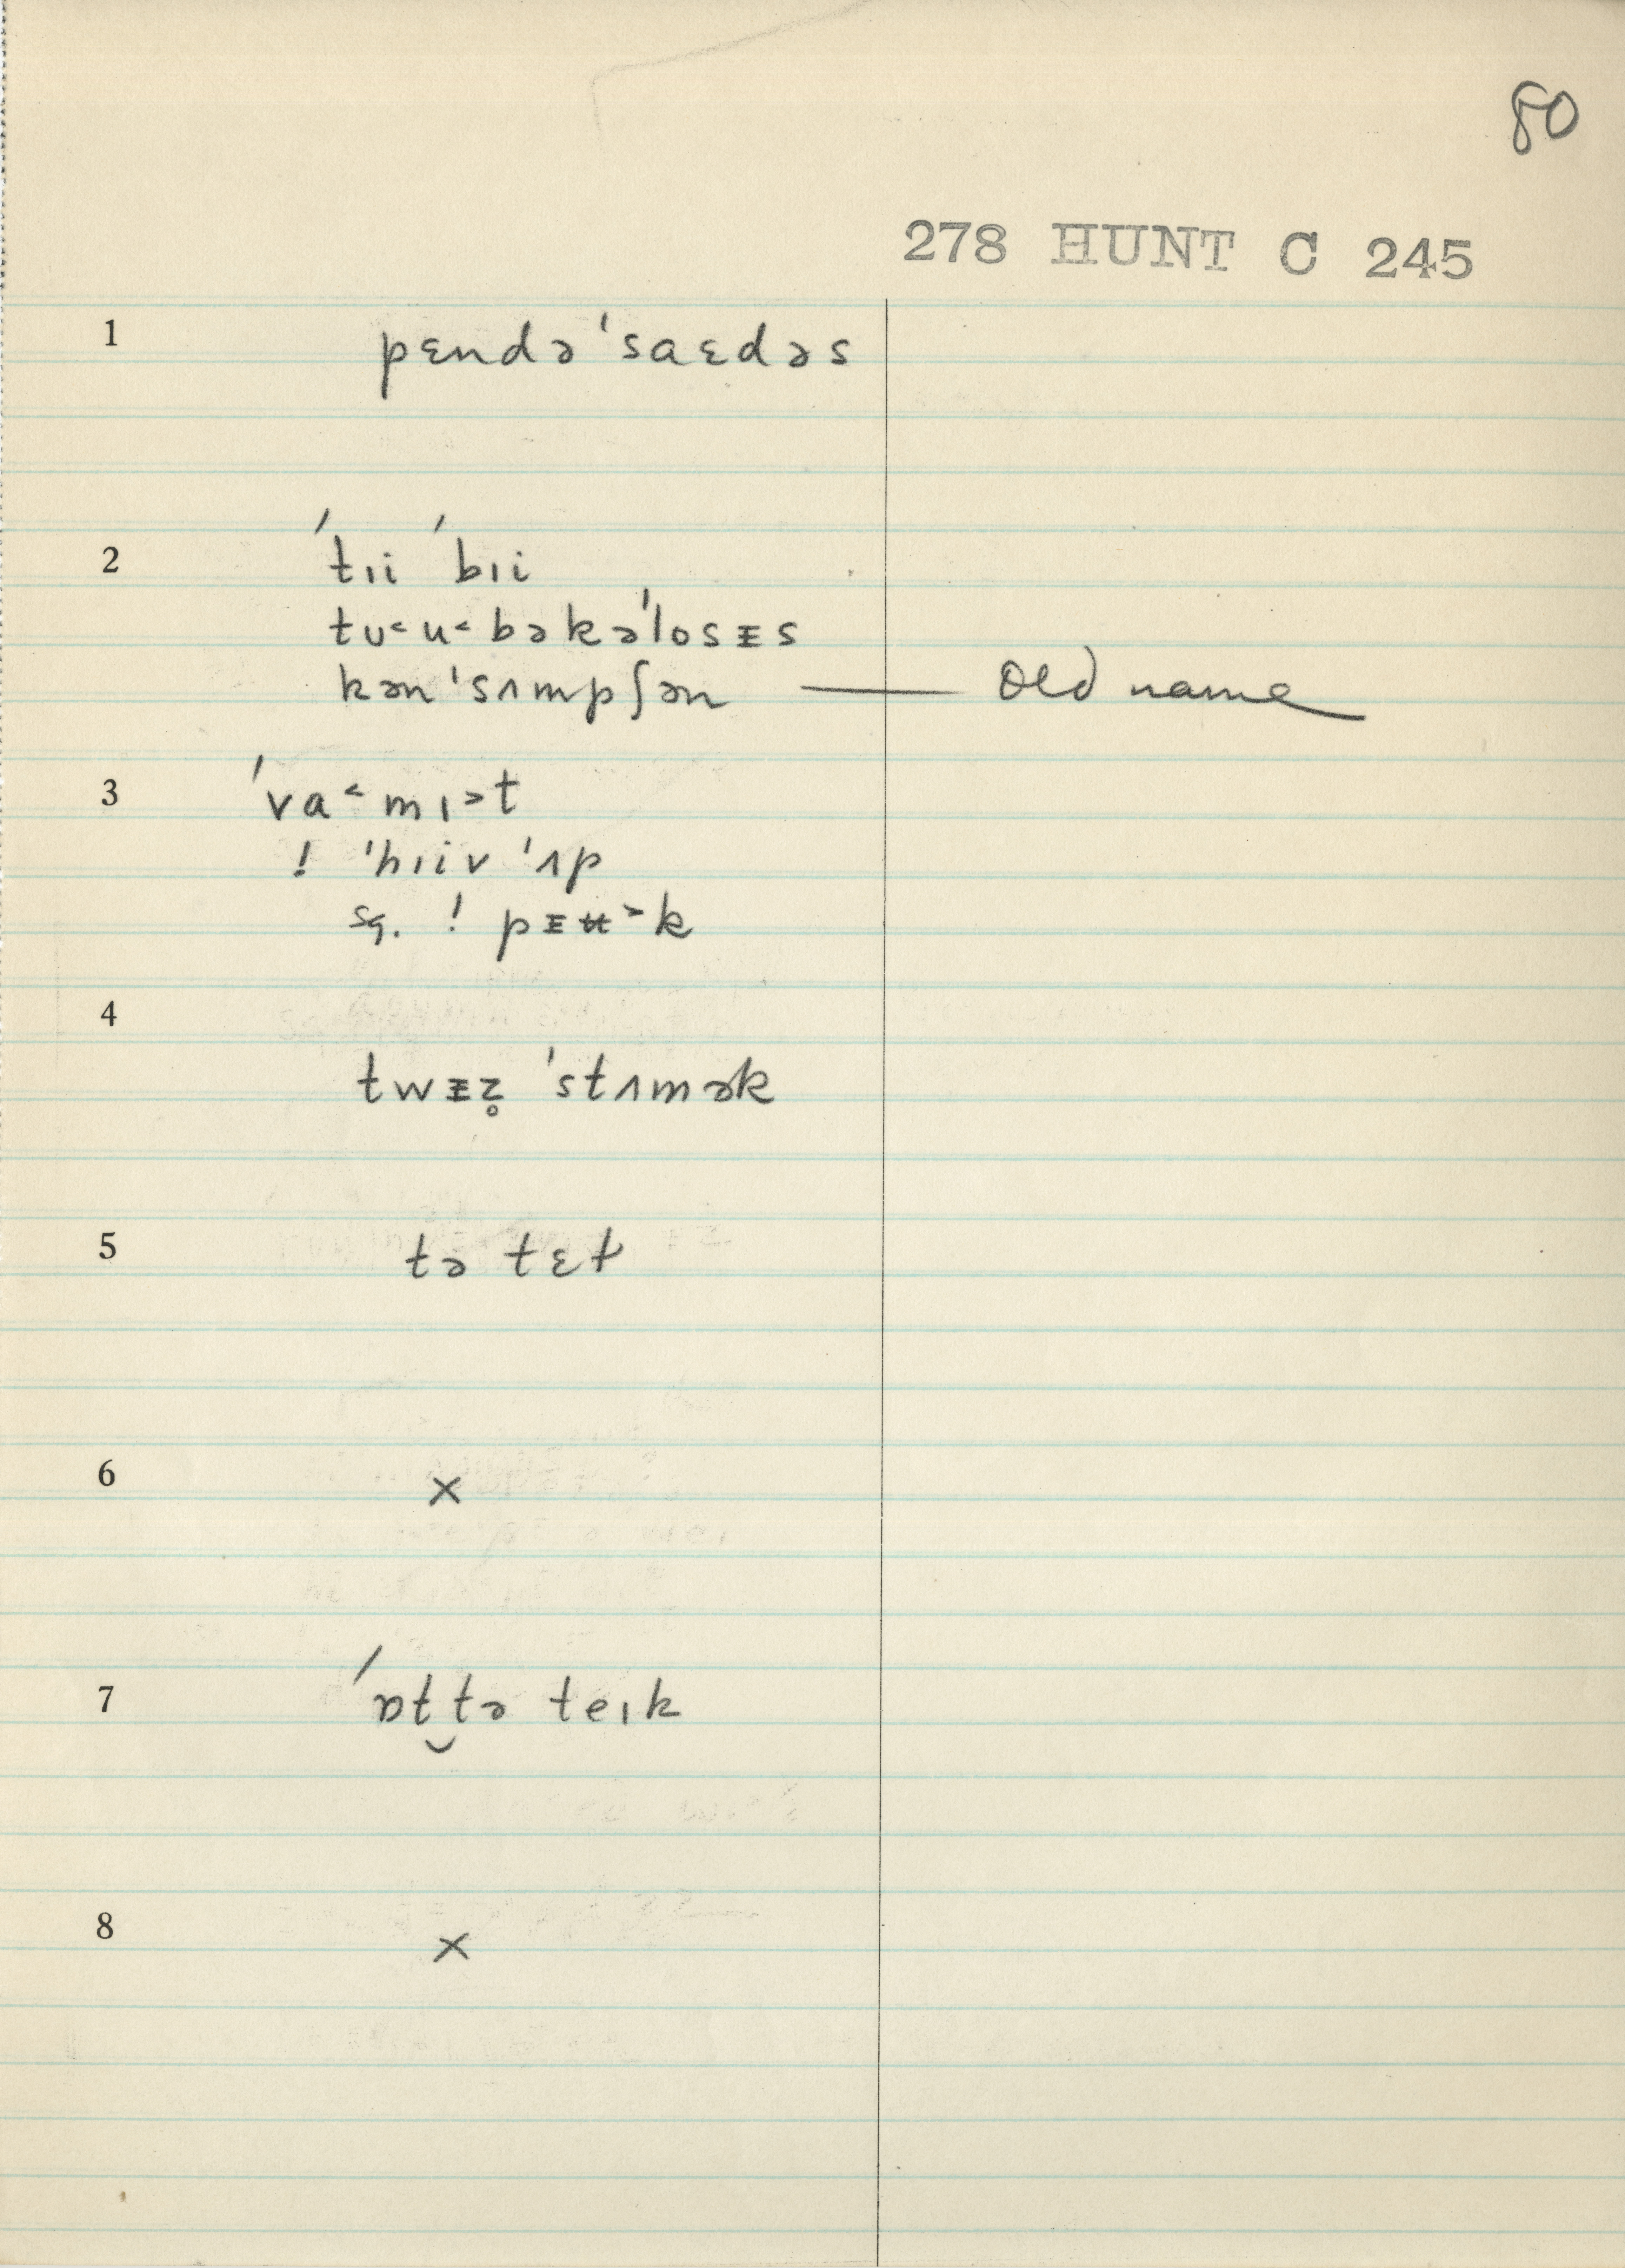 80
278 HUNT C 245
1 pɛndə'saɛdəs
2 'tɪi 'bɪi
tʊ˂u˂bəkə'losᵻs
kən'sʌmpʃən — old name
3 'va˂mɪ˃t
! 'hɪiv 'ʌp
sq. ! pᵻʉ˃k
4 twᵻz̥ 'stʌmək
5 tə tɛt
6 ×
7 'ɒt‿tə teɪk
8 ×